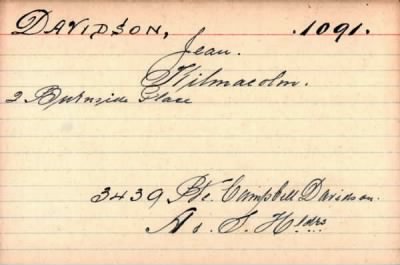 DAVIDSON, 1091.
Jean.
Kilmacolm.
2 Burnside Place
3439 Pte. Campbell Davidson.
A. & S. Hldrs